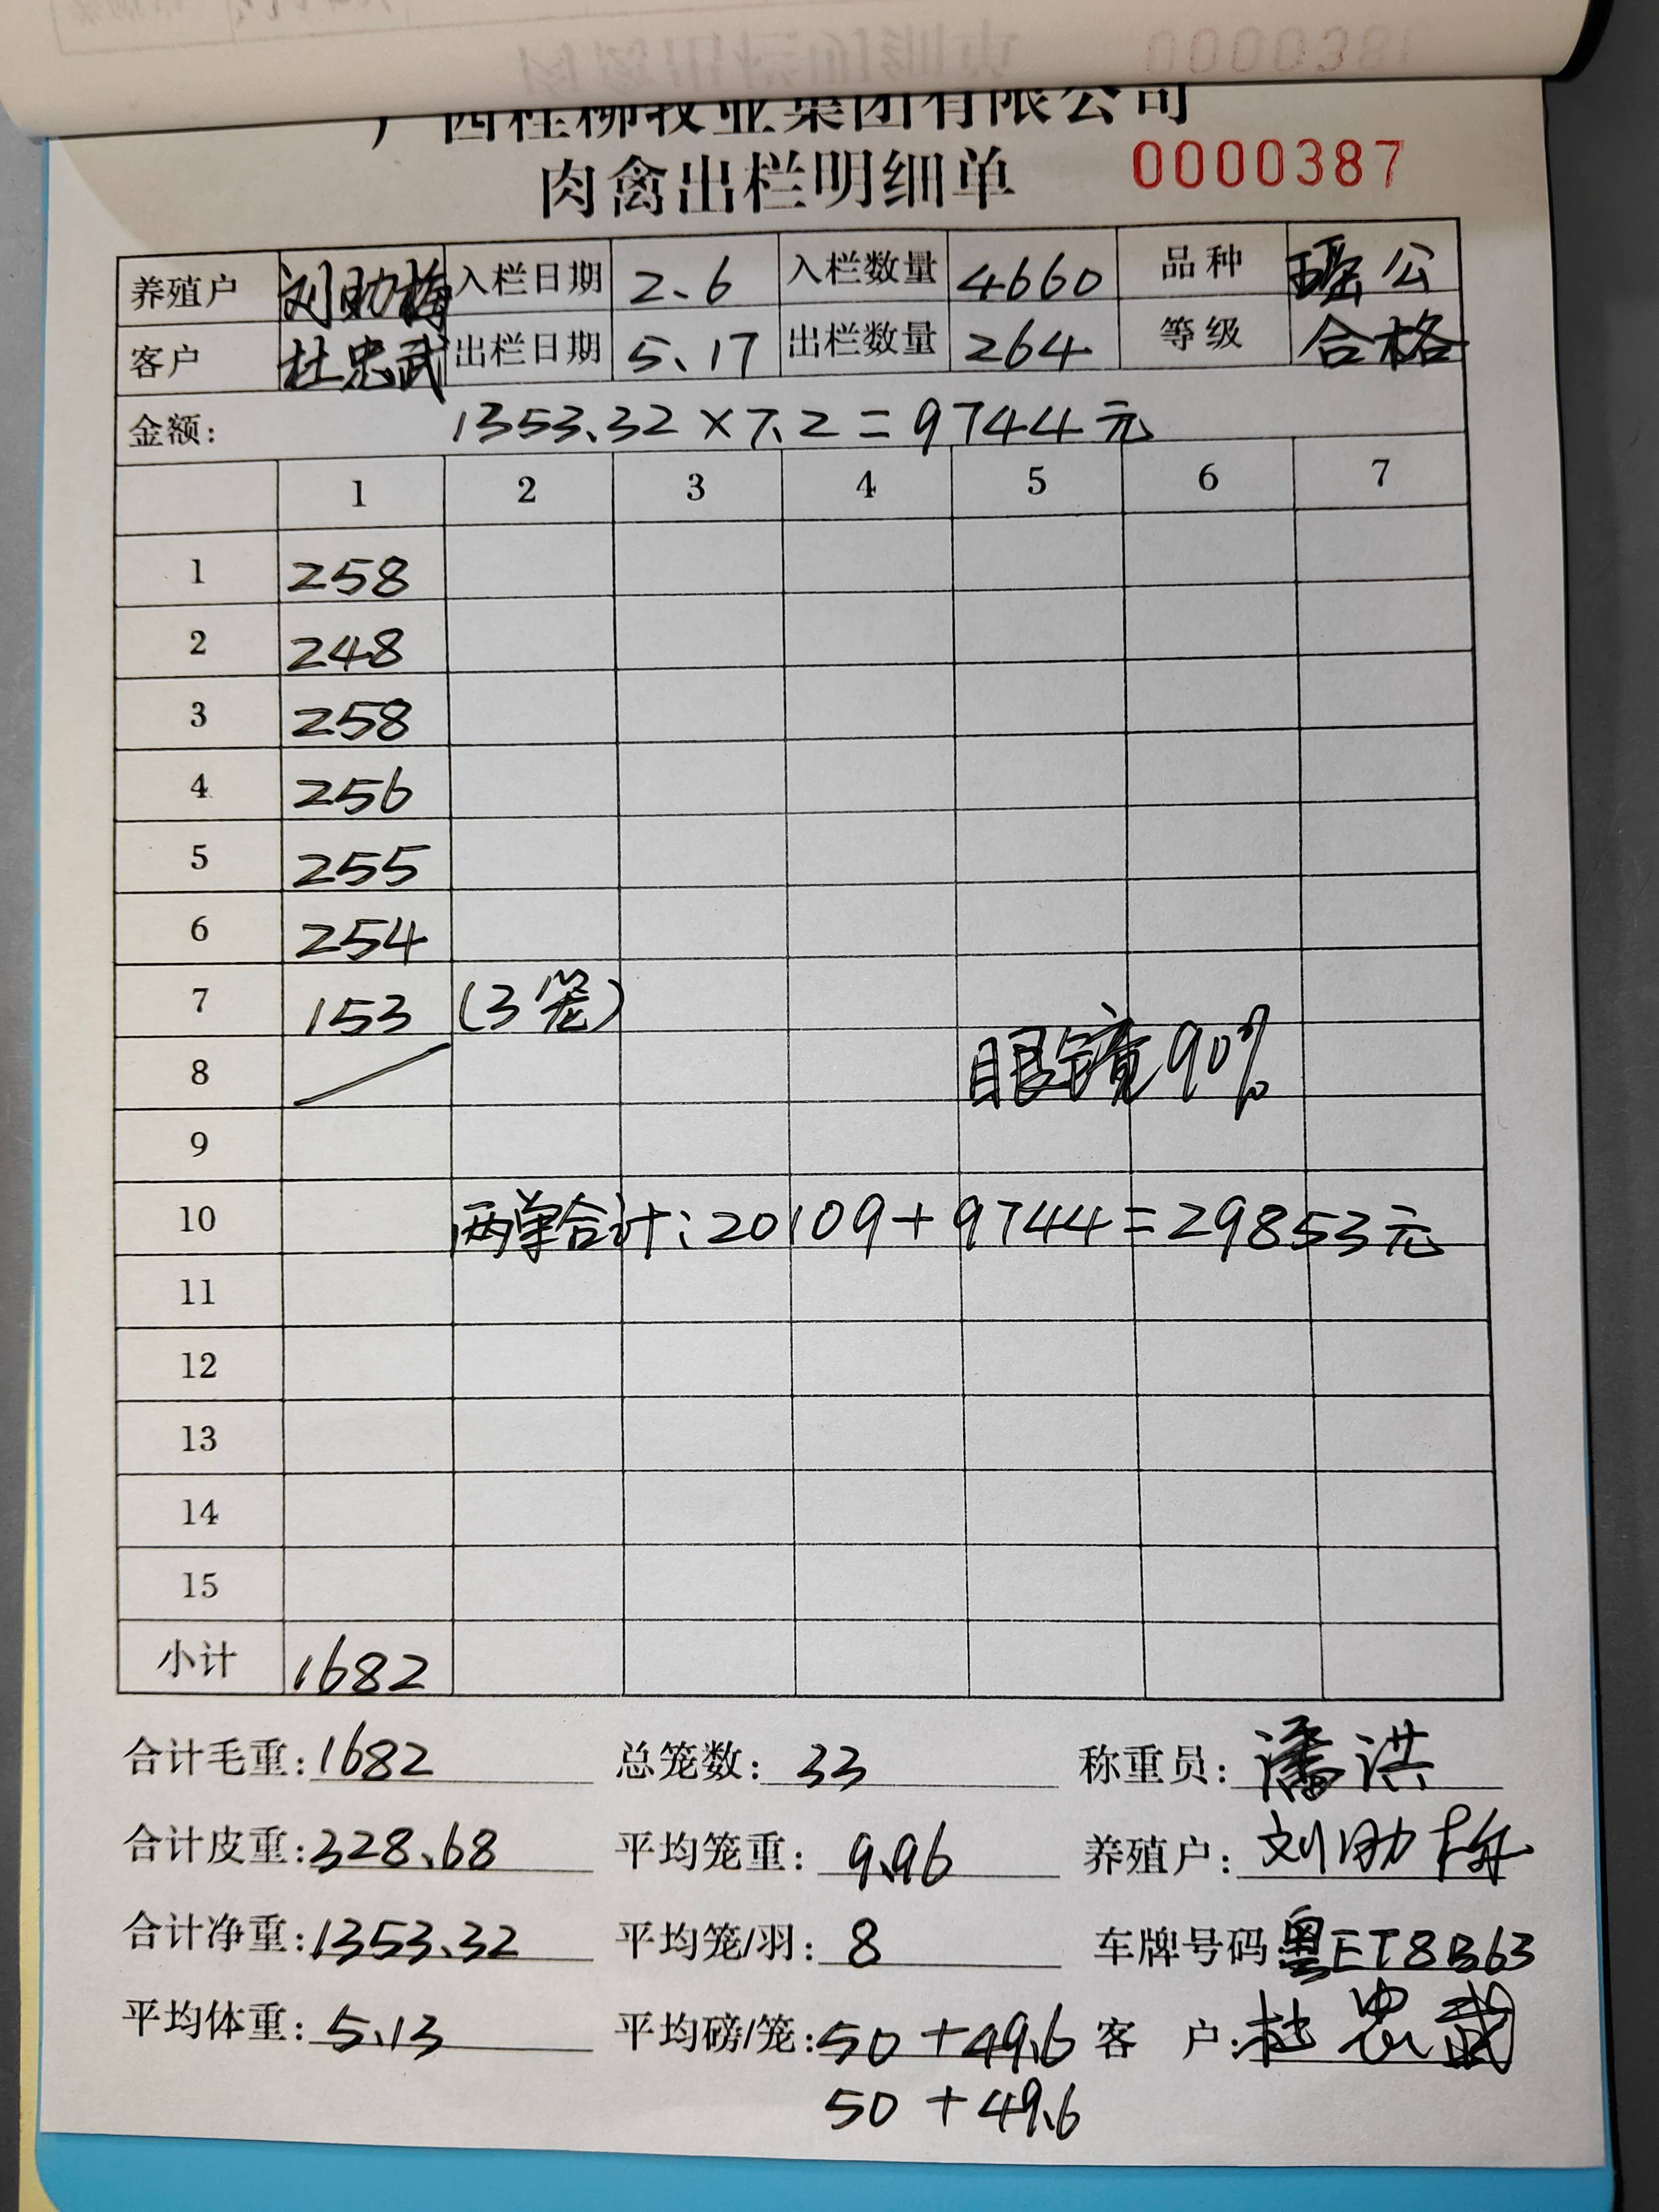 广西桂柳牧业集团有限公司
肉禽出栏明细单 0000387
养殖户 刘助梅 入栏日期 2.6 入栏数量 4660 品种 瑶公
客户 杜忠武 出栏日期 5.17 出栏数量 264 等级 合格
金额: 1353.32×7.2=9744元
1 2 3 4 5 6 7
1 258
2 248
3 258
4 256
5 255
6 254
7 153 (3笼)
8 眼镜90%
9
10 两单合计:20109+9744=29853元
11
12
13
14
15
小计 1682
合计毛重:1682 总笼数:33 称重员:潘洪
合计皮重:328.68 平均笼重:9.96 养殖户:刘助梅
合计净重:1353.32 平均笼/羽:8 车牌号码 粤ET8B63
平均体重:5.13 平均磅/笼:50+49.6 客 户:杜忠武
50+49.6